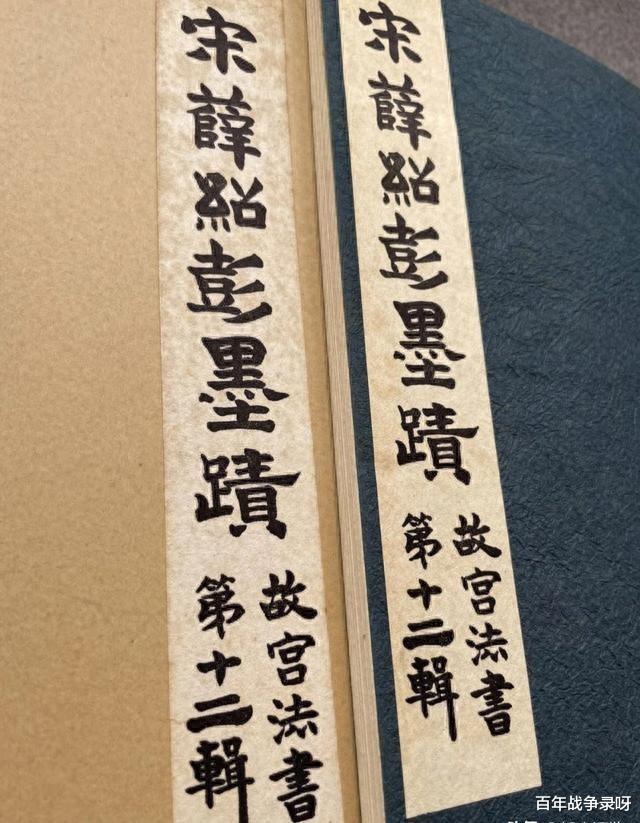 宋薛紹彭墨蹟
故宮法書
第十二輯
宋薛紹彭墨蹟
故宮法書
第十二輯
百年战争录呀